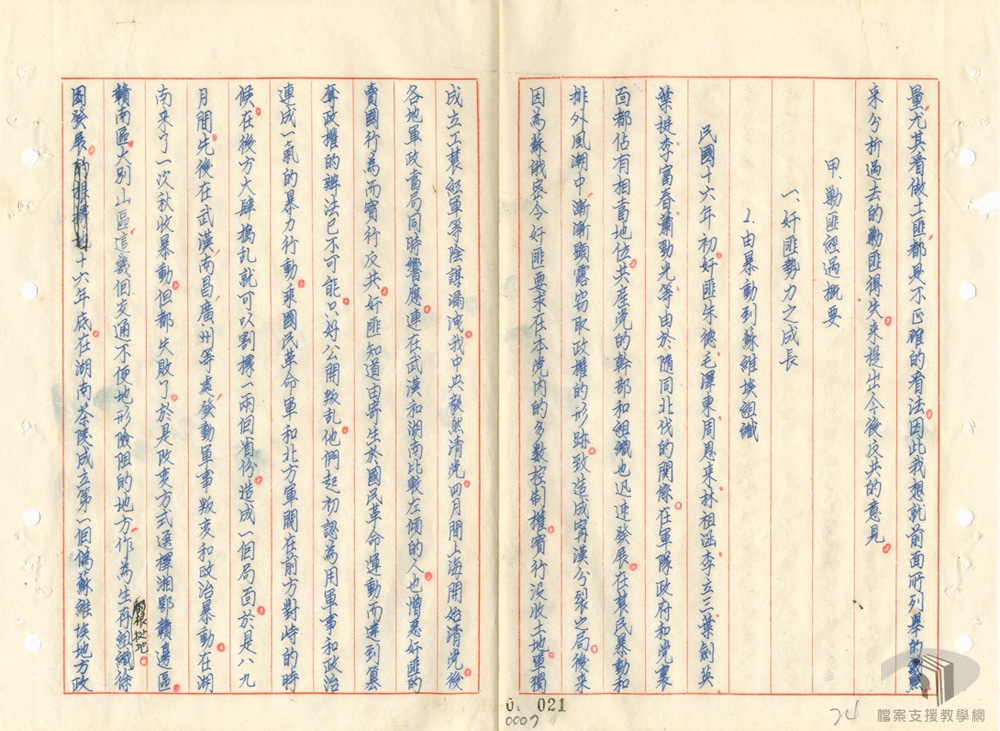 量，尤其看做土匪都與不正確的看法。因此我想就前面所列舉的
來分析過去的勦匪得失。來提出今後反共的意見。
甲、勦匪經過概要
一、奸匪勢力之成長
1.由暴動到蘇維埃組織
民國十六年初，奸匪朱德、毛澤東、周恩來、林祖涵、李立三、葉劍英、
葉挺、李富春、蕭勁光等，由於隨同北伐的關係。在軍隊政府和黨裏
面都佔有相當地位。共產黨的幹部和組織也迅速發展。在農民暴動和
排外風潮中，漸漸顯露竊取政權的形跡。致造成寧漢分裂之局。後來
因為蘇俄密令奸匪要求在本黨內的多數控制權。實行沒收土地。單獨
成立工農紅軍等陰謀漏洩。我中央毅然清黨。四月間上海開始清黨後
各地軍政當局同時響應。連在武漢和湖南比較左傾的人也憎惡奸匪的
賣國行為而實行反共。奸匪知道由寄生於國民革命運動而達到篡
奪政權的辦法已不可能。只好公開叛乱。他們起初認為用軍事和政治
連成一氣的暴力行動。乘國民革命軍和北方軍閥在前方對峙的時
候。在後方大肆搗乱就可以割據一兩個省份。造成一個局面。於是八九
月間。先後在武漢，南昌，廣州等處，發動軍事叛变和政治暴動。在湖
南來了一次秋收暴動。但都失敗了。於是改变方式選擇湘鄂贛邊區。
贛南區。大別山區，這幾個交通不便地形險阻的地方，作為生存組織徐
的根據地。
圖發展。十六年底在湖南茶陵成立第一個偽蘇維埃地方政
0、021
0007
檔案支援教學網